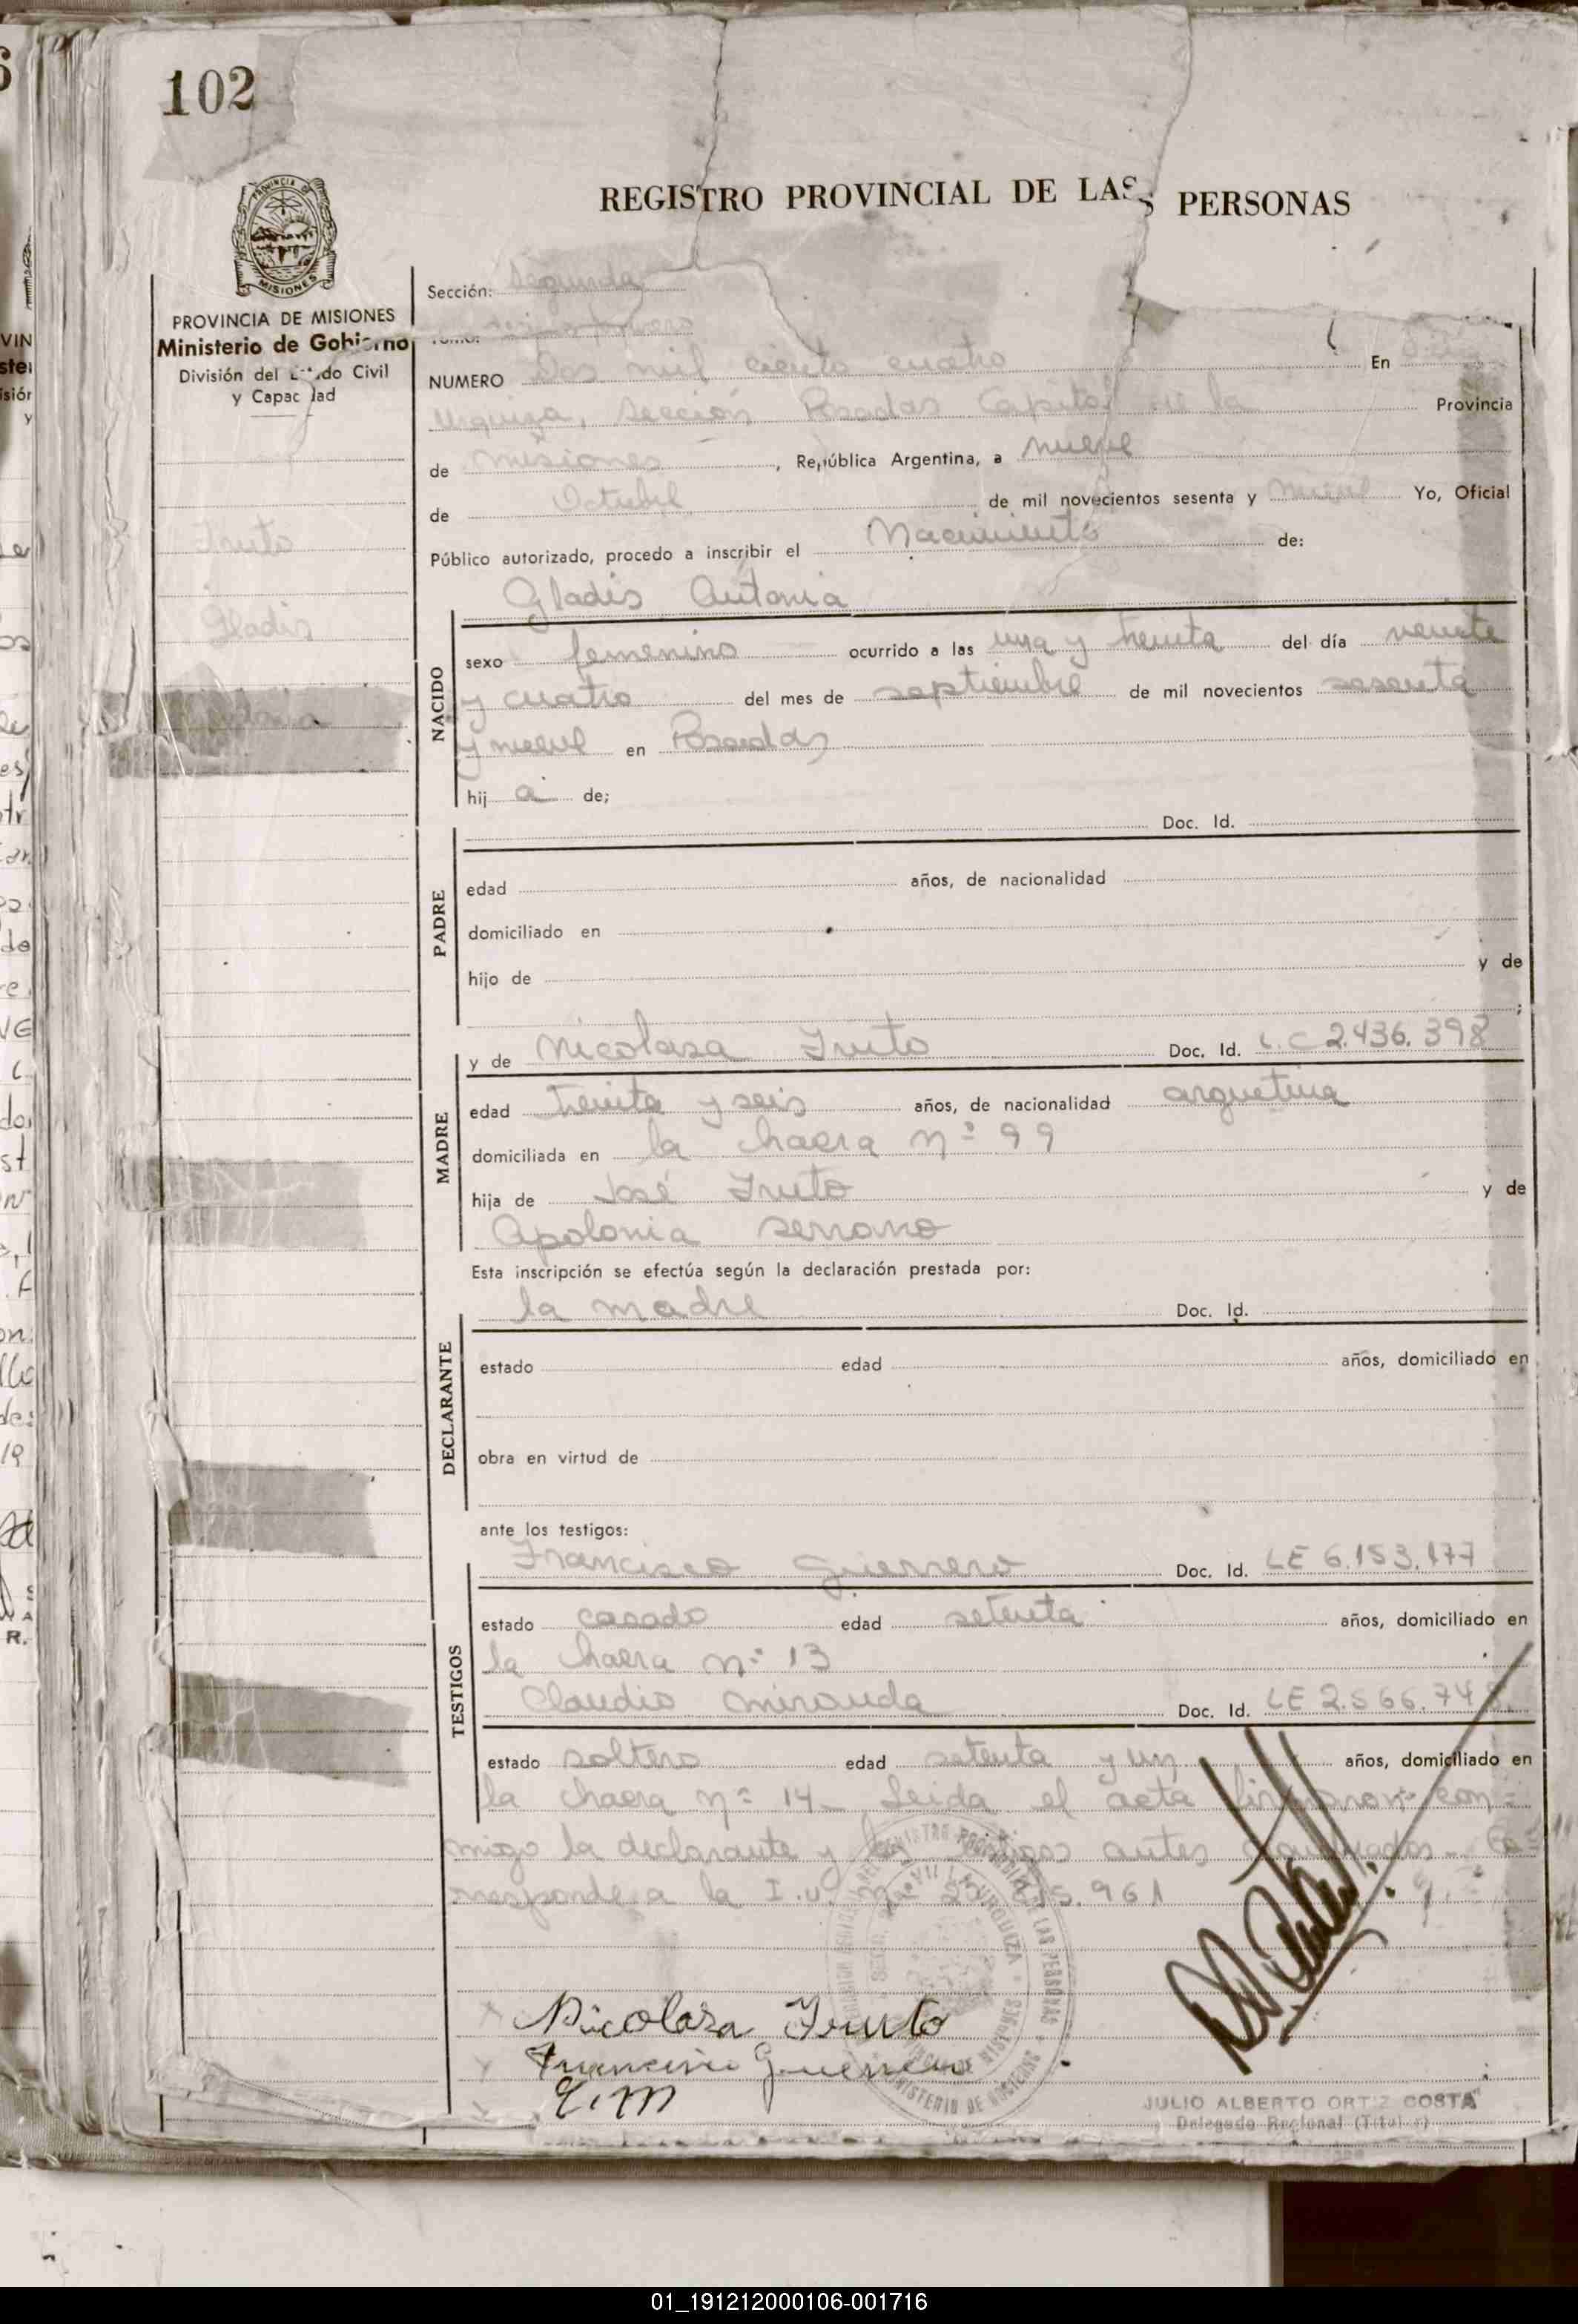 102
REGISTRO PROVINCIAL DE LAS PERSONAS
PROVINCIA DE MISIONES
Ministerio de Gobierno
División del Estado Civil
y Capacidad
Fruto
Gladis
Antonia
Sección: Segunda
Tomo:
NUMERO Dos mil ciento cuatro En
Urquiza, Sección Posadas Capital de la Provincia
de Misiones, República Argentina, a nueve
de Octubre de mil novecientos sesenta y nueve Yo, Oficial
Público autorizado, procedo a inscribir el Nacimiento de:
Gladis Antonia
NACIDO
sexo femenino ocurrido a las una y treinta del día veinte
y cuatro del mes de septiembre de mil novecientos sesenta
y nueve en Posadas
hij a de;
PADRE
Doc. Id.
edad años, de nacionalidad
domiciliado en
hijo de y de
;
MADRE
y de Nicolasa Fruto Doc. Id. L.C 2.436.398
edad treinta y seis años, de nacionalidad argentina
domiciliada en la chacra nº 99
hija de José Fruto y de
Apolonia Serrano
Esta inscripción se efectúa según la declaración prestada por:
DECLARANTE
la madre Doc. Id.
estado edad años, domiciliado en
obra en virtud de
ante los testigos:
TESTIGOS
Francisco Guerrero Doc. Id. LE 6.153.177
estado casado edad setenta años, domiciliado en
la chacra nº 13
Claudio Miranda Doc. Id. LE 2.566.74
estado soltero edad setenta y un años, domiciliado en
la chacra nº 14_ Leida el acta firmaron con=
migo la declarante y los testigos antes _ Co=
rresponde a la I.U. nº 961
Nicolasa Fruto
Francisco Guerrero
C.M
JULIO ALBERTO ORTIZ COSTA
Delegado Regional (Titular)
01_191212000106-001716